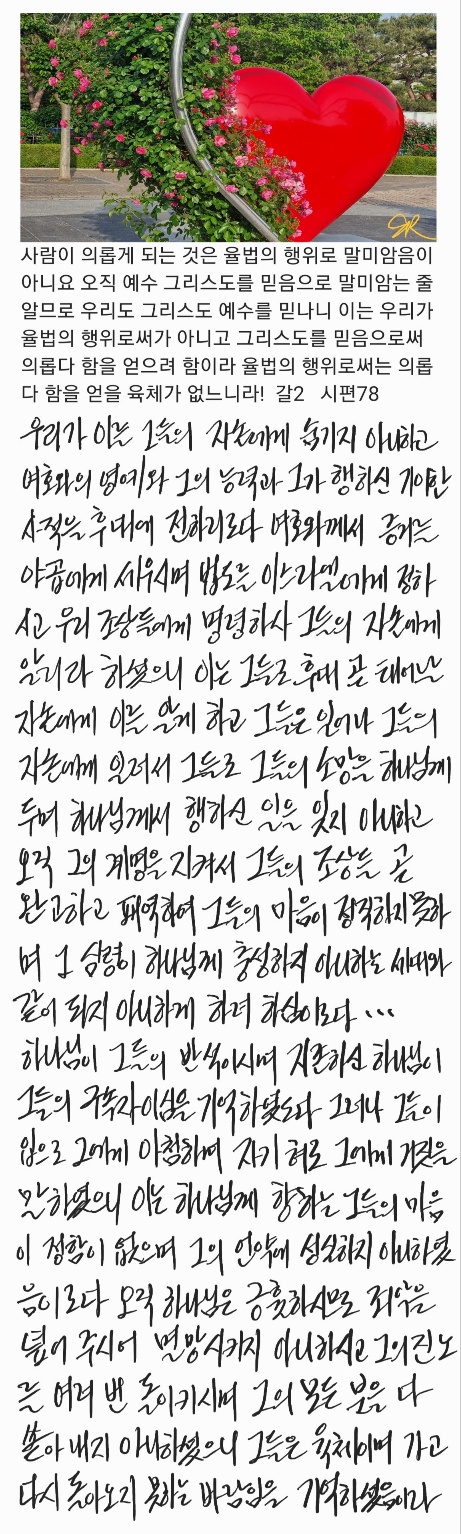 사람이 의롭게 되는 것은 율법의 행위로 말미암음이
아니요 오직 예수 그리스도를 믿음으로 말미암는 줄
알므로 우리도 그리스도 예수를 믿나니 이는 우리가
율법의 행위로써가 아니고 그리스도를 믿음으로써
의롭다 함을 얻으려 함이라 율법의 행위로써는 의롭
다 함을 얻을 육체가 없느니라! 갈2 시편78
우리가 이를 그들의 자손에게 숨기지 아니하고
여호와의 영예와 그의 능력과 그가 행하신 기이한
사적을 후대에 전하리로다 여호와께서 증거를
야곱에게 세우시며 법도를 이스라엘에게 정하
시고 우리 조상들에게 명령하사 그들의 자손에게
알리라 하셨으니 이는 그들로 후대 곧 태어날
자손에게 이를 알게 하고 그들은 일어나 그들의
자손에게 일러서 그들로 그들의 소망을 하나님께
두며 하나님께서 행하신 일을 잊지 아니하고
오직 그의 계명을 지켜서 그들의 조상들 곧
완고하고 패역하여 그들의 마음이 정직하지 못하
며 그 심령이 하나님께 충성하지 아니하는 세대와
같이 되지 아니하게 하려 하심이로다 ...
하나님이 그들의 반석이시며 지존하신 하나님이
그들의 구속자이심을 기억하였도다 그러나 그들이
입으로 그에게 아첨하며 자기 혀로 그에게 거짓을
말하였으니 이는 하나님께 향하는 그들의 마음
이 정함이 없으며 그의 언약에 성실하지 아니하였
음이로다 오직 하나님은 긍휼하시므로 죄악을
덮어 주시어 멸망시키지 아니하시고 그의 진노
를 여러 번 돌이키시며 그의 모든 분을 다
쏟아 내지 아니하셨으니 그들은 육체이며 가고
다시 돌아오지 못하는 바람임을 기억하셨음이라